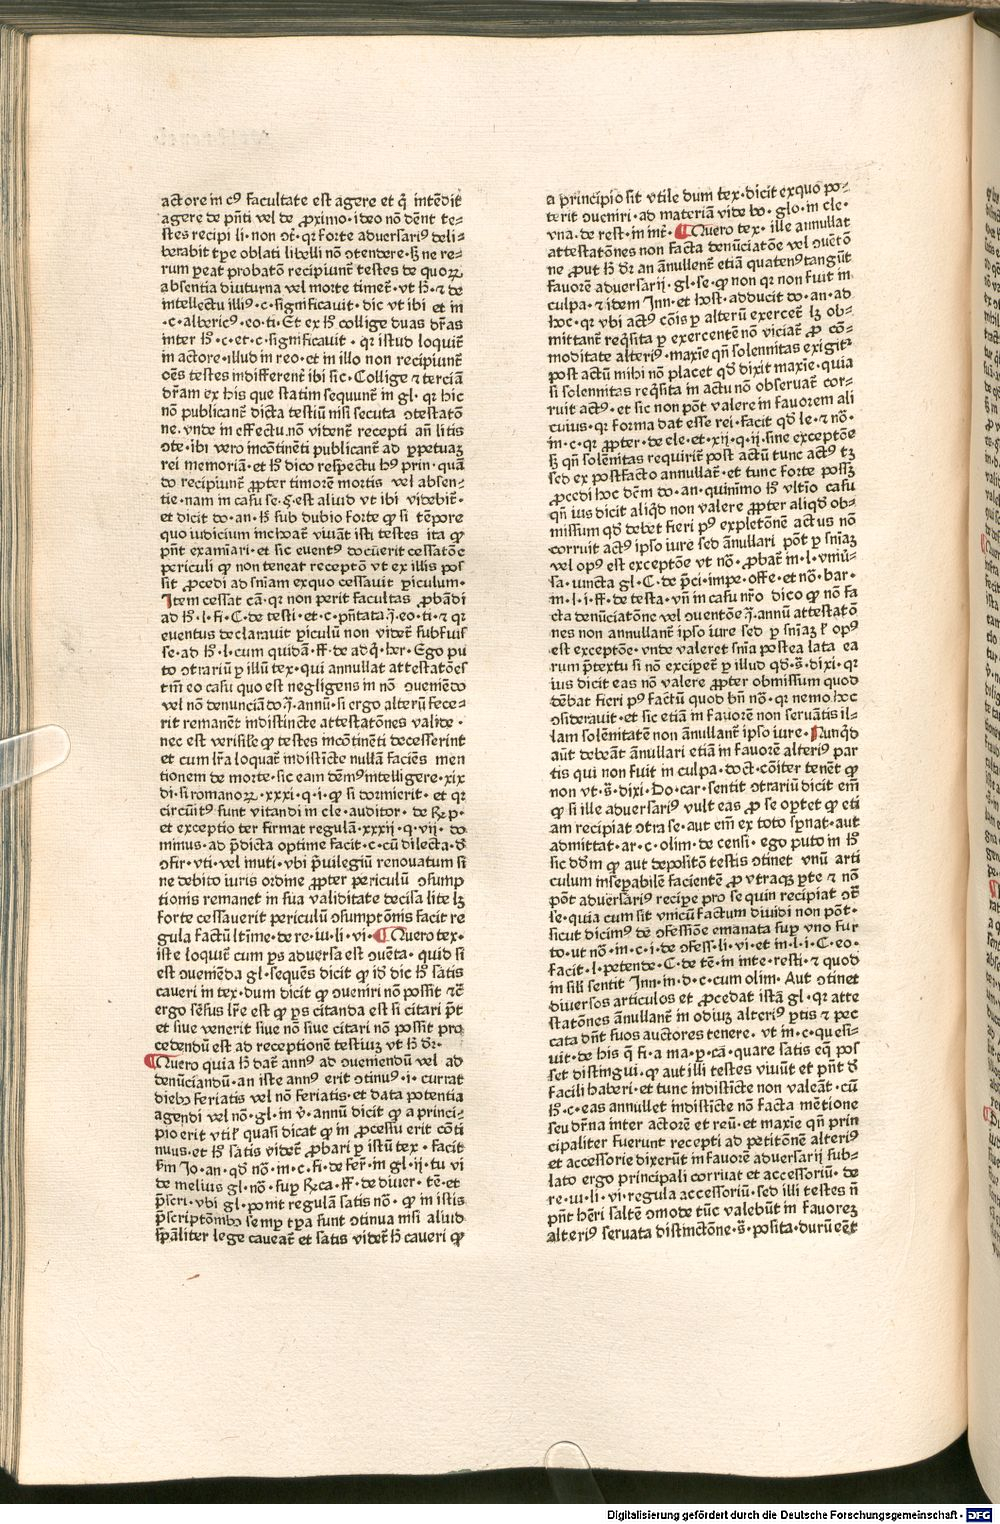 actore in cꝰ facultate est agere et q̇ intēdit
agere de pn̄ti vel de ꝓximo·ideo nō dēnt te⸗
stes recipi li·non ↄt̄·qꝛ forte aduersariꝰ deli⸗
berabit tꝑe oblati libelli nō ↄtendere·ꝫ ne re⸗
rum ꝑeat probatō recipiunt̄ testes de quoꝝ
absentia diuturna vel morte timet̄·vt h̄·⁊ de
intellectu illiꝰ·c·significauit·dic vt ibi et in
·c·albericꝰ·eo·ti·Et ex h̄ collige duas dr̄as
inter h̄·c·et·c·significauit·qꝛ istud loquit̄
in actore·illud in reo·et in illo non recipiunt̄
oēs testes indifferent̄ ibi sic·Collige ⁊ terciā
dr̄am ex his que statim sequunt̄ in gl·qꝛ hic
nō publicant̄ dicta testiū nisi secuta ↄtestatō
ne·vnde in effectu·nō vident̄ recepti an̄ litis
ↄte·ibi vero incōtinēti publicant̄ ad ꝑpetuaꝫ
rei memoriā·et h̄ dico respectu hꝰ prin·quā
do recipiunt̄ ꝓpter timorē mortis vel absen⸗
tie·nam in casu se·§·est aliud vt ibi videbit̄·
et dicit do·an·h̄ sub dubio forte ꝙ si tēpore
quo iudicium inchoat̄ viuāt isti testes ita ꝙ
pn̄t examīari·et sic euentꝰ docuerit cessatōe
periculi ꝙ non teneat receptō vt ex illis pos
sit ꝓcedi ad sn̄iam exquo cessauit ꝑiculum·
Item cessat cā·qꝛ non perit facultas ꝓbādi
ad h̄·l·fi·C·de testi·et·c·pn̄tata·j̄·eo·ti·⁊ qꝛ
euentus declarauit ꝑiculū non videt̄ subfuis
se·ad h̄·l·cum quidā·ff·de adq̇·her·Ego pu
to ↄtrariū ꝑ illū tex·qui annullat attestatōes
tm̄ eo casu quo est negligens in nō ↄueniēdo
vel nō denunciādo j̄·annū·si ergo alterū fece⸗
rit remanēt indistincte attestatōnes valide·
nec est verisile ꝙ testes incōtinēti decesserint
et cum lr̄a loquat̄ indistincte nullā faciēs men
tionem de morte·sic eam dēmꝰ intelligere·xix
di·si romanoꝝ·xxxi·q·i·ꝙ si dormierit·et qꝛ
circūitꝰ sunt vitandi in cle·auditor·de R̄p·
et exceptio ter firmat regulā·xxxij·q·vij·do
minus·ad p̄dicta optime facit·c·cū dilecta·d̄
ↄfir·vti·vel inuti·vbi p̄uilegiū renouatum si
ne debito iuris ordine ꝓpter periculū ↄsump
tionis remanet in sua validitate decisa lite lꝫ
forte cessauerit periculū ↄsumptōnis facit re
gula factū ltīme·de re·iu·li·vi·¶Quero tex·
iste loquit̄ cum ꝑs aduersa est ↄuēta·quid si
est ↄueniēda gl·sequēs dicit ꝙ id̄ dic h̄ satis
caueri in tex·dum dicit ꝙ ↄueniri nō possit ⁊c̄
ergo sēsus lr̄e est ꝙ ꝑs citanda est si citari p̄t
et siue venerit siue nō siue citari nō possit pro
cedendū est ad receptionē testiuꝫ vt h̄ dr̄·
¶Quero quia h̄ dat̄ annꝰ ad ↄueniendū vel ad
denūciandū·an iste annꝰ erit ↄtinuꝰ·i·currat
diebꝰ feriatis vel nō feriatis·et data potentia
agendi vel nō·gl·in v̄·annū dicit ꝙ a princi⸗
pio erit vtil̄ quasi dicat ꝙ in ꝓcessu erit cōti
nuus·et h̄ satis videt̄ ꝓbari ꝑ istū tex·facit
s̄m Jo·an·qd̄ nō·in·c·fi·de fer̄·in gl·ij·tu vi
de melius gl·nō·suꝑ R̄ca·ff·de diuer·tē·et
p̄scri·vbi gl·ponit regulā satis nō·ꝙ in istis
p̄scriptōnibꝰ semꝑ tꝑa sunt ↄtinua nisi aliud
sp̄aliter lege caueat̄ et satis videt̄ h̄ caueri ꝙ
a principio sit vtile dum tex·dicit exquo po⸗
terit ↄueniri·ad materiā vide bo·glo·in cle·
vna·de rest·in int̄·¶Quero tex·ille annullat
attestatōnes non facta denūciatōe vel ↄuētō
ne ꝓut h̄ dr̄ an ānullent̄ etiā quatenꝰ tangūt
fauorē aduersarij·gl·se·ꝙ non qꝛ non fuit in
culpa·⁊ idem Inn·et host·adducit do·an·ad
hoc·qꝛ vbi actꝰ cōis ꝑ alterū exercet̄ lꝫ ob⸗
mittant̄ reqsita ꝑ exercentē nō viciat̄ ꝓ cō⸗
moditate alteriꝰ·maxīe qn̄ solennitas exigit̄
post actū mihi nō placet qd̄ dixit maxīe·quia
si solennitas reqsita in actu nō obseruat̄ cor⸗
ruit actꝰ·et sic non pōt valere in fauorem ali
cuius·qꝛ forma dat esse rei·facit qd̄ le·⁊ nō·
in·c·qꝛ ꝓpter·de ele·et·xij·q·ij·sine exceptōe
ꝫ qn̄ solēnitas requirit̄ post actū tunc actꝰ tꝫ
sed ex postfacto annullat̄·et tunc forte possꝫ
ꝓcedi hoc dēm do·an·quinimo h̄ vltīo casu
qn̄ ius dicit aliqd̄ non valere ꝓpter aliqd̄ ob⸗
missum qd̄ debet fieri pꝰ expletōnē actus nō
corruit actꝰ ipso iure sed ānullari pōt ꝑ sn̄iaꝫ
vel opꝰ est exceptōe vt nō·ꝓbat̄ in·l·vniū⸗
sa·iuncta gl·C·de p̄ci·impe·offe·et nō·bar·
in·l·i·ff·de testa·vn̄ in casu nr̄o dico ꝙ nō fa
cta denūciatōne vel ↄuentōe j̄·annū attestatō
nes non annullant̄ ipso iure sed ꝑ sn̄iaꝫ l̄ opꝰ
est exceptōe·vnde valeret sn̄ia postea lata ea
rum p̄textu si nō excipet̄ ꝑ illud qd̄·s̄·dixi·qꝛ
ius dicit eas nō valere ꝓpter obmissum quod
dēbat fieri pꝰ factū quod bn̄ nō·qꝛ nemo hoc
ↄsiderauit·et sic etiā in fauorē non seruātis il⸗
lam solēnitatē non ānullant̄ ipso iure·Nunqd̄
aūt debeāt ānullari etiā in fauorē alteriꝰ par
tis qui non fuit in culpa·doct·cōiter tenēt ꝙ
non vt·s̄·dixi·Do·car·sentit ↄtrariū dicit em̄
ꝙ si ille aduersariꝰ vult eas ꝓ se oꝑtet ꝙ eti
am recipiat ↄtra se·aut em̄ ex toto sꝑnat·aut
admittat·ar·c·olim·de censi·ego puto in h̄
sic dd̄m ꝙ aut depositō testis ↄtinet vnū arti
culum inseꝑabilē facientē ꝓ vtraqꝫ ꝑte ⁊ nō
pōt aduersariꝰ recipe pro se quin recipiat ↄt̄
se·quia cum sit vnicū factum diuidi non pōt·
sicut dicimꝰ de ↄfessiōe emanata suꝑ vno fur
to·ut nō·in·c·i·de ↄfess·li·vi·et in·l·i·C·eo·
facit·l·petende·C·de tē·in inte·resti·⁊ quod
in sili sentit Inn·in·d·c·cum olim·Aut ↄtinet
diuersos articulos et ꝓcedat istā gl·qꝛ atte
statōnes ānullant̄ in odiuꝫ alteriꝰ ꝑtis ⁊ pec
cata dn̄t suos auctores tenere·vt in·c·quesi⸗
uit·de his q̄ fi·a ma·ꝑ·cā·quare satis eq̄ pos
set distingui·ꝙ aut illi testes viuūt et pn̄t d̄
facili haberi·et tunc indisticte non valeāt·cū
h̄·c·eas annullet indisticte nō facta mētione
seu dr̄na inter actorē et reū·et maxīe qn̄ prin
cipaliter fuerunt recepti ad petitōnē alteriꝰ
et accessorie dixerūt in fauorē aduersarij sub⸗
lato ergo principali corruat et accessoriū·de
re·iu·li·vi·regula accessoriū·sed illi testes n̄
pn̄t h̄eri saltē ↄmode tūc valebūt in fauoreꝫ
alteriꝰ seruata distinctōne·s̄·posita·durū eēt
Digitalisierung gefördert durch die Deutsche Forschungsgemeinschaft - DFG